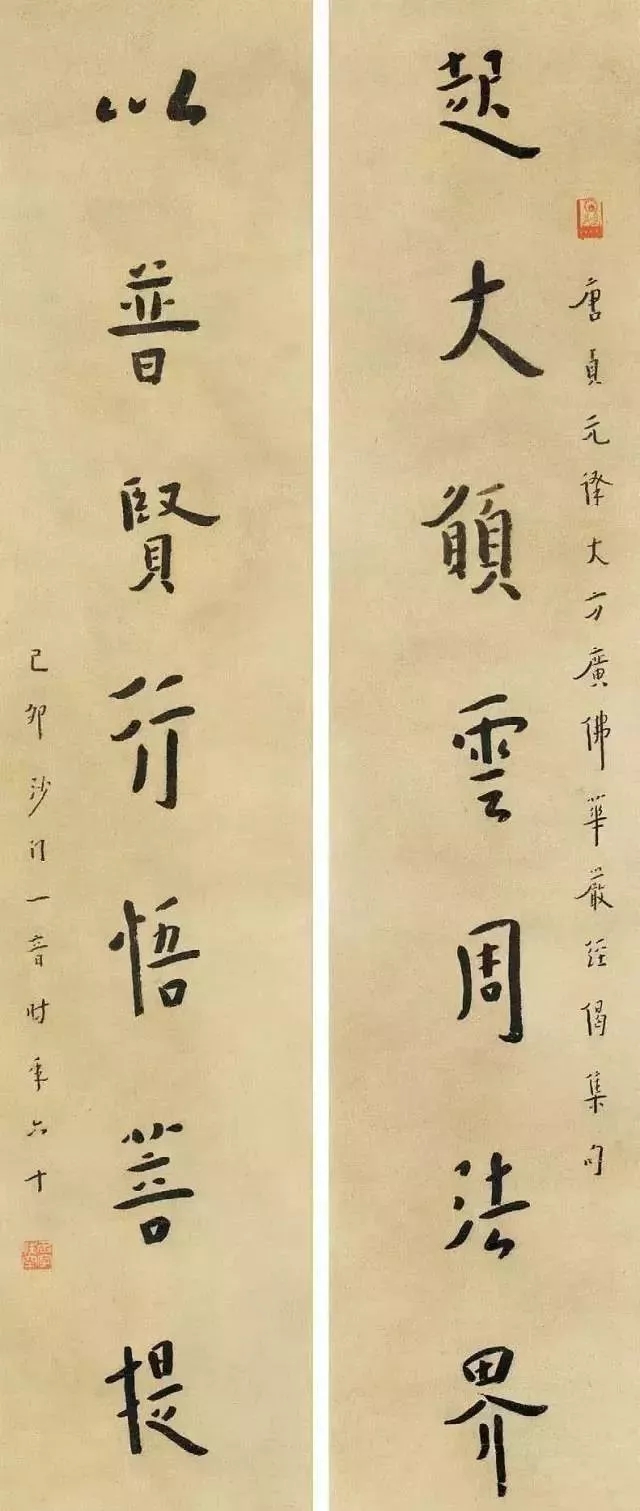 唐貞元譯大方廣佛華嚴經偈集句
起大願雲周法界
以普賢行悟菩提
己卯沙門一音时年六十